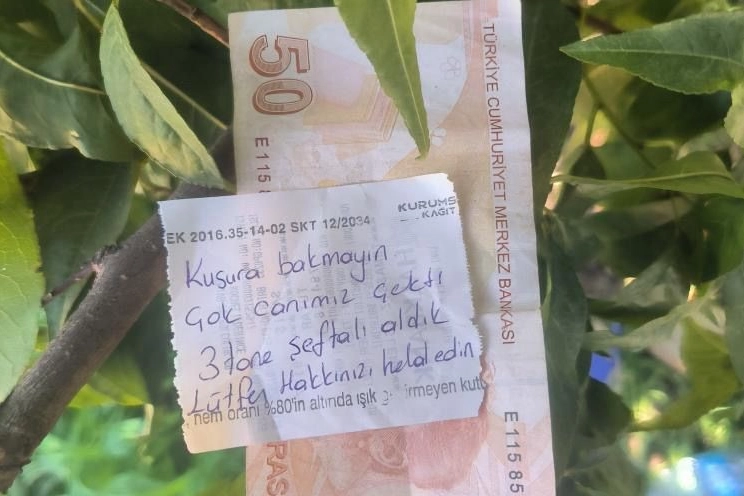 50
TÜRKİYE CUMHURİYET MERKEZ BANKASI
E 115 8
KURUMS
KAĞIT
EK 2016.35-14-02 SKT 12/2034
Kusura bakmayın
Çok canımız çekti
3 tane şeftali aldık
Lütfen Hakkınızı helal edin
nem oranı %80'in altında ışık g irmeyen kutu
E 115 85
RAS